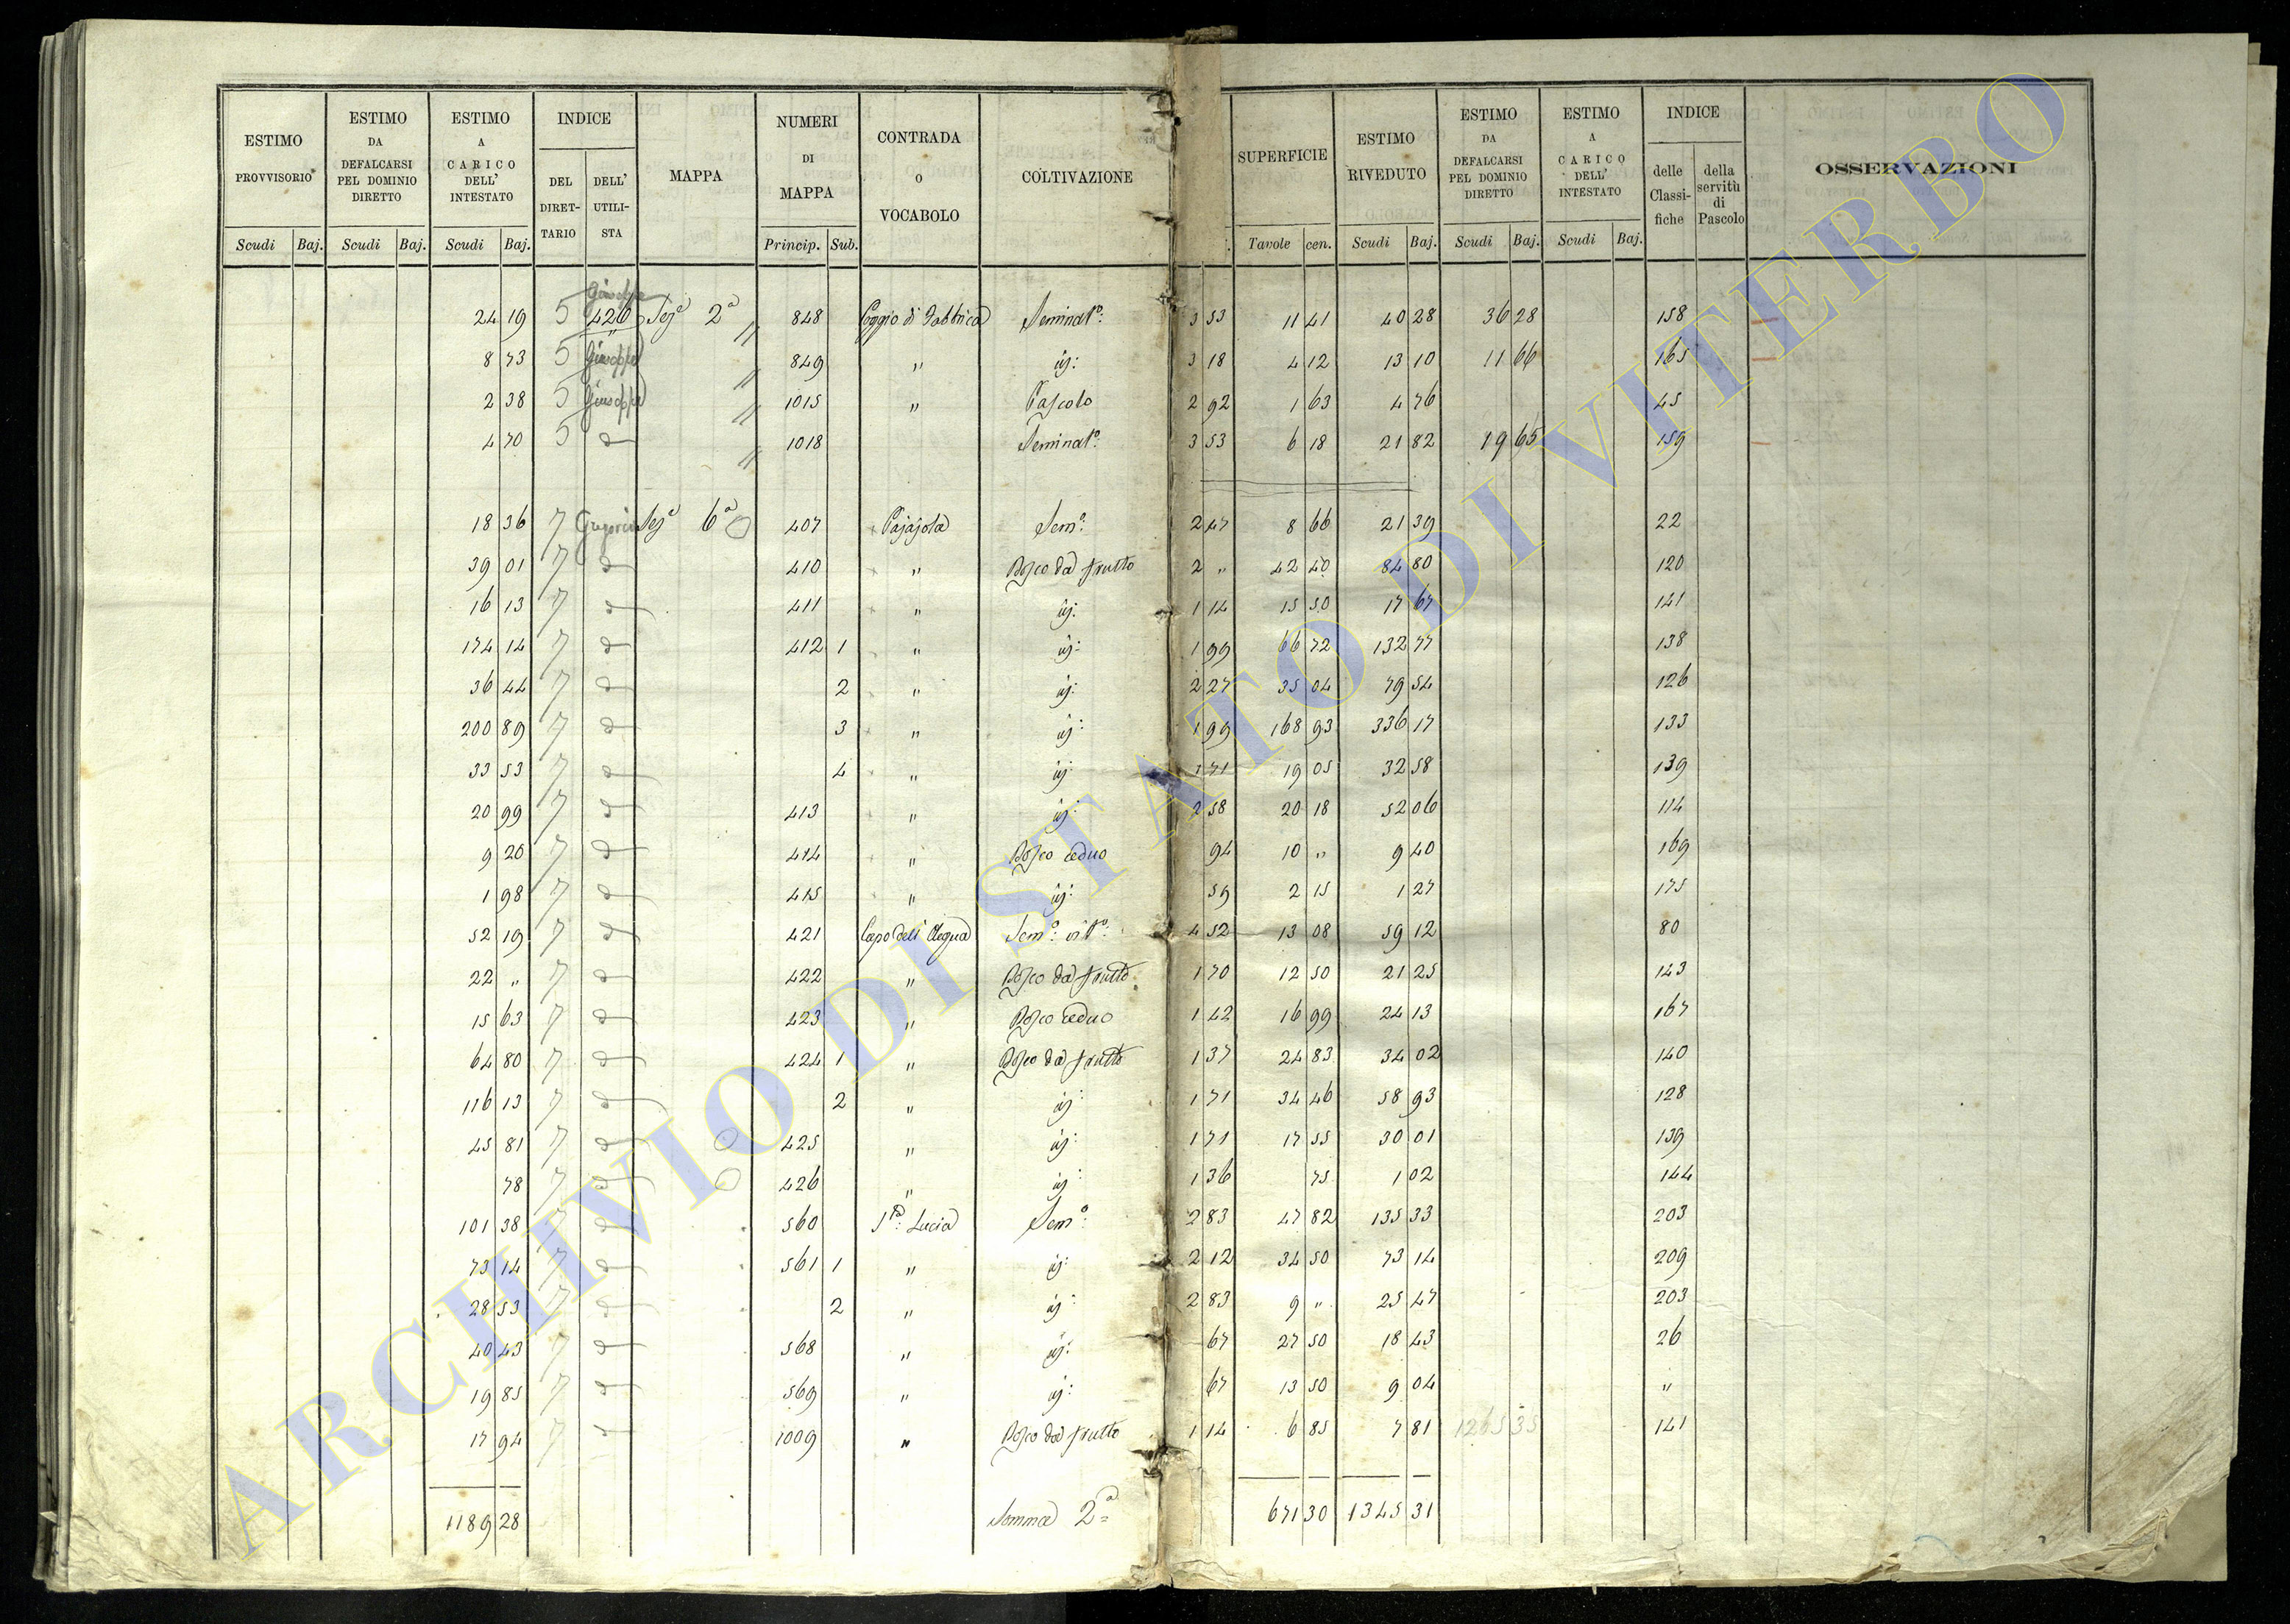 ESTIMO PROVVISORIO Scudi Baj.
ESTIMO DA DEFALCARSI PEL DOMINIO DIRETTO Scudi Baj.
ESTIMO A CARICO DELL' INTESTATO Scudi Baj.
INDICE DEL DIRET-TARIO DELL' UTILI-STA
MAPPA
NUMERI DI MAPPA Princip. Sub.
CONTRADA O VOCABOLO
COLTIVAZIONE
SUPERFICIE Tavole cen.
ESTIMO RIVEDUTO Scudi Baj.
ESTIMO DA DEFALCARSI PEL DOMINIO DIRETTO Scudi Baj.
ESTIMO A CARICO DELL' INTESTATO Scudi Baj.
INDICE delle Classi-fiche della servitù di Pascolo
OSSERVAZIONI
Giuseppe
24 19 5 426 Sez.e 2a 848 Poggio di Fabbrica Seminat.o: 3 53 11 41 40 28 36 28 158
8 73 5 Giuseppe 849 " id: 3 18 4 12 13 10 11 66 165
2 38 5 Giuseppe 1015 " Pascolo 2 92 1 63 4 76 45
4 70 5 d 1018 Seminat.o: 3 53 6 18 21 82 19 65 159
18 36 7 Gregorio Sez.e 6a 407 Pajajola Sem.o: 2 47 8 66 21 39 22
39 01 7 d 410 " Bosco da frutto 2 " 42 40 84 80 120
16 13 7 d 411 " id: 1 14 15 50 17 67 141
174 14 7 d 412 1 " id: 1 99 66 72 132 77 138
36 44 7 d 2 " id: 2 27 35 04 79 54 126
200 89 7 d 3 " id: 1 99 168 93 336 17 133
33 53 7 d 4 " id: 1 71 19 05 32 58 139
20 99 7 d 413 " id: 2 58 20 18 52 06 114
9 20 7 d 414 " Bosco ceduo 94 10 " 9 40 169
1 98 7 d 415 " id: 59 2 15 1 27 175
52 19 7 d 421 Capo dell' Acqua Sem.o: vit.o: 4 52 13 08 59 12 80
22 " 7 d 422 " Bosco da frutto 1 70 12 50 21 25 143
15 63 7 d 423 " Bosco ceduo 1 42 16 99 24 13 167
64 80 7 d 424 1 " Bosco da frutto 1 37 24 83 34 02 140
116 13 7 d 2 " id: 1 71 34 46 58 93 128
45 81 7 d 425 " id: 1 71 17 55 30 01 139
78 7 d 426 " id: 1 36 75 1 02 144
101 38 7 d 560 S.ta: Lucia Sem.o: 2 83 47 82 135 33 203
73 14 7 d 561 1 " id: 2 12 34 50 73 14 209
28 53 7 d 2 " id: 2 83 9 " 25 47 203
40 43 7 d 568 " id: 67 27 50 18 43 26
19 85 7 d 569 " id: 67 13 50 9 04 "
17 94 7 d 1009 " Bosco da frutto 1 14 6 85 7 81 1265 35 141
1189 28 Somma 2a 671 30 1345 31
ARCHIVIO DI STATO DI VITERBO